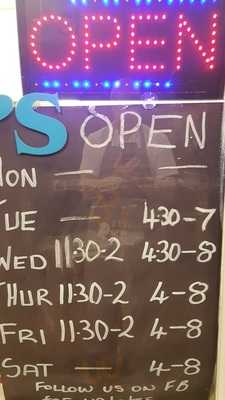 OPEN
'S OPEN
MON — —
TUE — 4:30-7
WED 11:30-2 4:30-8
THUR 11:30-2 4-8
FRI 11:30-2 4-8
SAT — 4-8
FOLLOW US ON FB
FOR